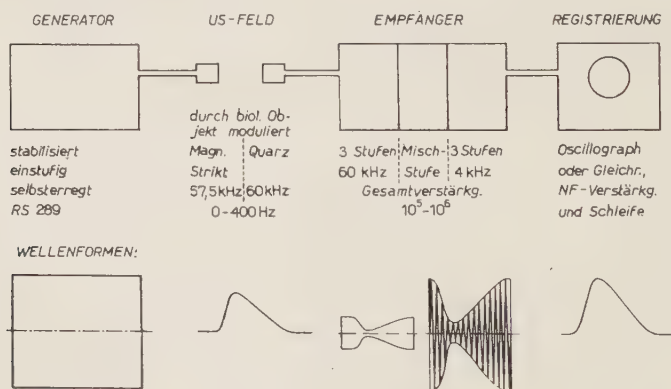 GENERATOR
US-FELD
EMPFÄNGER
REGISTRIERUNG
stabilisiert
einstufig
selbsterregt
RS 289
durch biol. Ob-
jekt moduliert
Magn. Quarz
Strikt
57,5kHz 60kHz
0-400Hz
3 Stufen Misch- 3 Stufen
60 kHz Stufe 4 kHz
Gesamtverstärkg.
10⁵-10⁶
Oscillograph
oder Gleichr.,
NF-Verstärkg.
und Schleife
WELLENFORMEN: